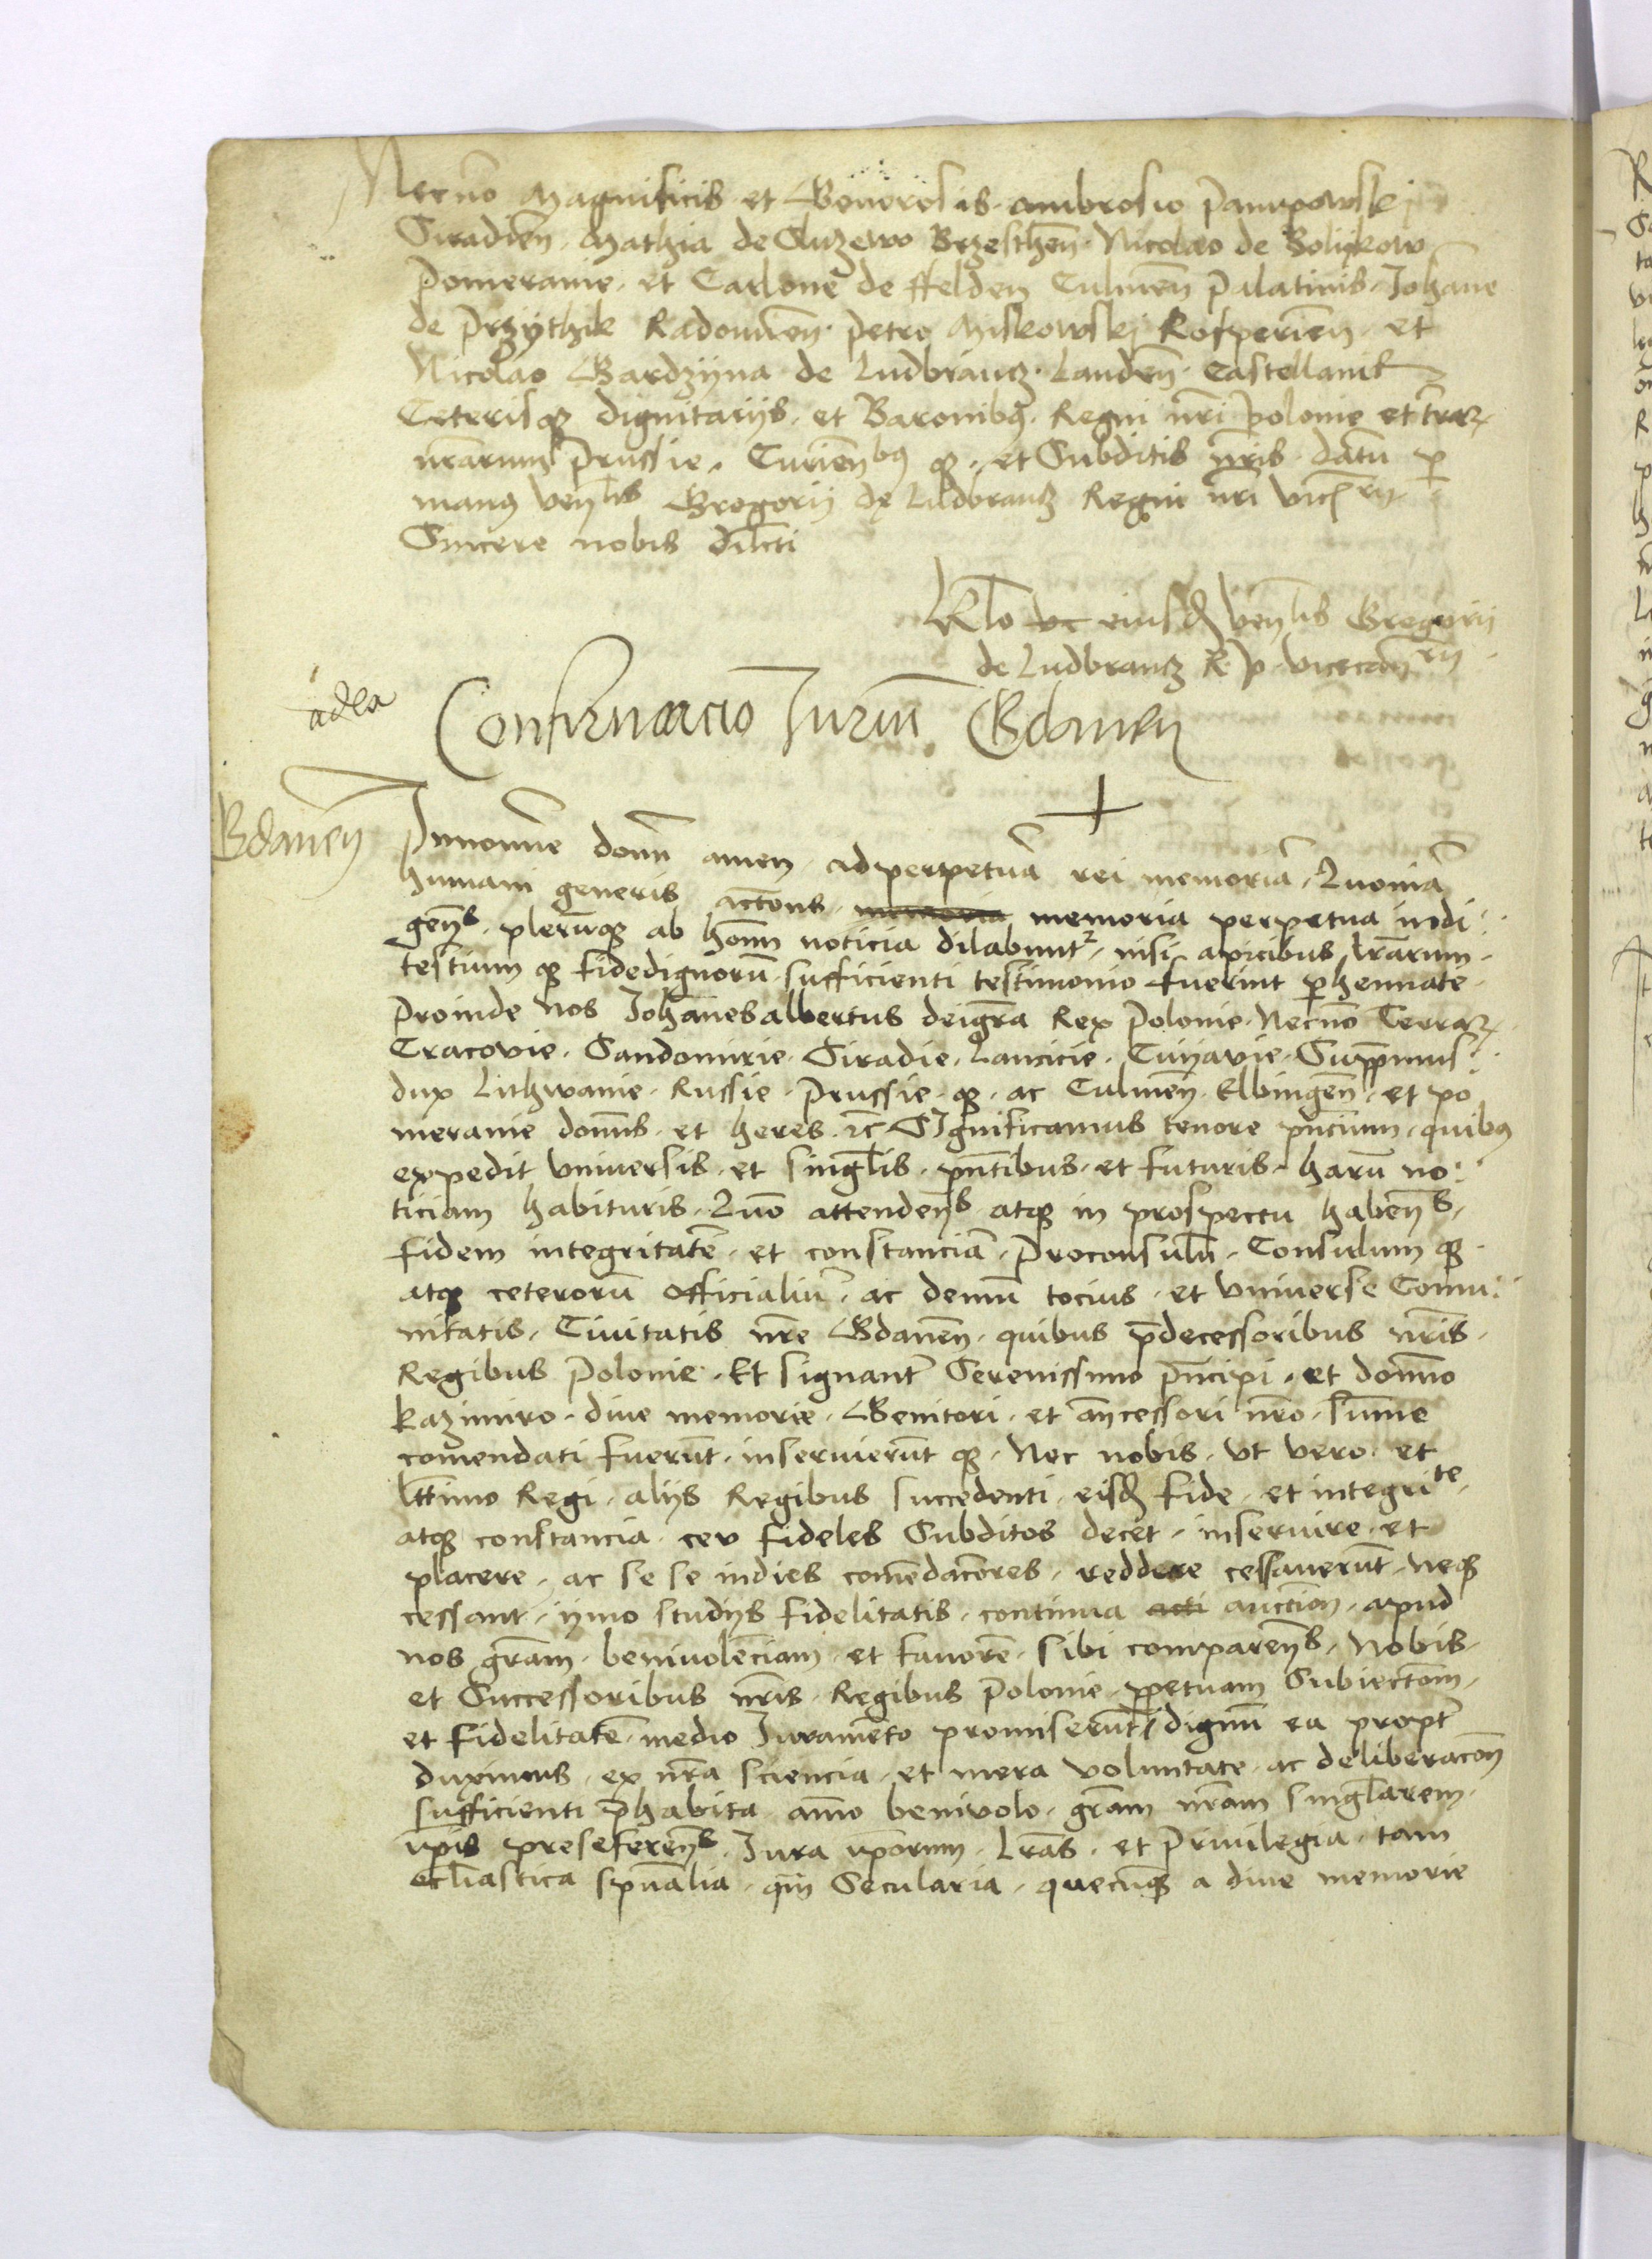 Necno Magnificis et Generosis Ambrosio Pampowskj
Siradien Mathia de Sluzewo Brzesthen Nicolao de Bolijkow
Pomeranie et Carlone de ffelden Culmen Palatinis Johane
de Przythik Radomien Petro Miskowskj Rosperien et
Nicolao Gardzyna de Ludbrancz Landen Castellanis
Ceterisq dignitarijs et Baronibq Regni nri Polonie et trar
nrarum Prussie Curienbq q et Subditis nris datu p
manq venlis Gregorij de Ludbrancz Regni nri vicrij
Sincere nobis dilcti
Rlo eiusd venlis Gregorij
de Ludbrancz R P vicecanrij
adea
Confirmacio Juriu Gdanen
Gdanen
Innomie domi amen adperpetua rei memoria Quonia
humani generis actons memoria memoria perpetua indi
gens pleruq ab hom noticia dilabuntr nisi apicibus lrarum
testium q fidedignoru sufficienti testimonio fuerint phennate
Proinde Nos Johanes albertus deigra Rex Polonie Necno Terrar
Cracovie Sandomirie Siradie Lancicie Cuyavie Suppmus
dux Lithwanie Russie Prussie q ac Culmen Elbingen et Po
meranie domns et heres zc SIgnificamus tenore pncium quibq
expedit vniuersis et singlis pntibus et futuris haru no
ticiam habituris Quo attendens atq in prospectu habens
fidem integritate et constancia Proconsulu Consulum q
atq ceteroru officialiu ac demu tocius et vniuerse Comu
nitatis Ciuitatis nre Gdanen quibus pdecessoribus nris
Regibus Polonie Et signant Serenissimo Pncipi et domno
kazimiro diue memorie Genitori et ancessori nro sume
comendati fuerut inseruierut q Nec nobis vt vero et
lttimo Regi alijs Regibus succedenti eisd fide et integrite
atq constancia ceu fideles Subditos decet inseruire et
placere ac se se indies comendacores reddere cessauerut neq
cessant ymo studijs fidelitatis continua acti auccion apud
nos gram beniuolenciam et fauore sibi comparens Nobis
et Successoribus nris Regibus Polonie ppetuam Subiectom
et fidelitate medio Juramento promiserut dignu ea propt
duximus ex nra sciencia et mera voluntate ac deliberacon
sufficienti phabita amo beniuolo gram nram singlarem
ipis preseferens Jura iporum Lras et Priuilegia tam
ecliastica spualia qm Secularia quecuq a diue memorie